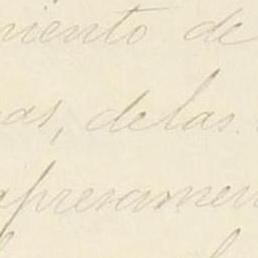 niento de
as, de las
apresamen